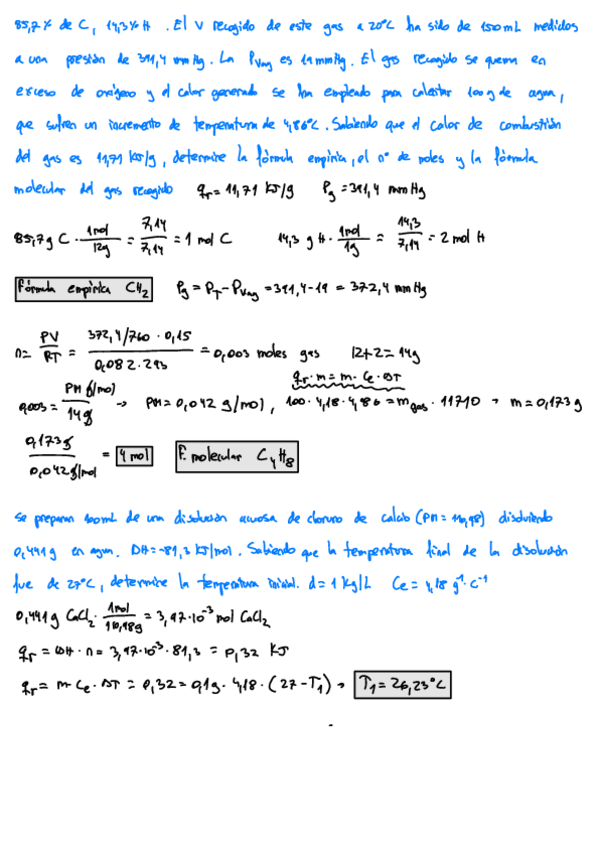 85,7 % de C, 14,3% H . El V recogido de este gas a 20ºC ha sido de 150 mL medidos
a una presión de 391,4 mmHg. La Pvag es 19 mmHg. El gas recogido se quema en
exceso de oxígeno y el calor generado se ha empleado para calentar 100 g de agua,
que sufren un incremento de temperatura de 4,86ºC. Sabiendo que el calor de combustión
del gas es 11,71 KJ/g, determine la fórmula empírica, el nº de moles y la fórmula
molecular del gas recogido qr = 11,71 KJ/g Pg = 391,4 mmHg
85,7g C · 1mol/12g = 7,14/7,14 = 1 mol C 14,3 g H · 1mol/1g = 14,3/7,14 = 2 mol H
Fórmula empírica CH2 Pg = PT - Pvag = 391,4 - 19 = 372,4 mmHg
n = PV/RT = 372,4/760 · 0,15 / 0,082 · 293 = 0,003 moles gas 12+2 = 14g
qr · m = m · Ce · ΔT
0,003 = PM g/mol / 14g → PM = 0,042 g/mol, 100 · 4,18 · 4,86 = mgas · 11710 → m = 0,173 g
0,173g / 0,042 g/mol = 4 mol F. molecular C4H8
Se preparan 100mL de una disolución acuosa de cloruro de calcio (PM = 110,98) disolviendo
0,441 g en agua. DH = -81,3 KJ/mol. Sabiendo que la temperatura final de la disolución
fue de 27ºC, determine la temperatura inicial. d = 1 Kg/L Ce = 4,18 g⁻¹ · C⁻¹
0,441 g CaCl2 · 1mol/110,98g = 3,97·10⁻³ mol CaCl2
qr = DH · n = 3,97·10⁻³ · 81,3 = 0,32 KJ
qr = m · Ce · ΔT = 0,32 = 0,1g · 4,18 · (27 - T1) → T1 = 26,23ºC